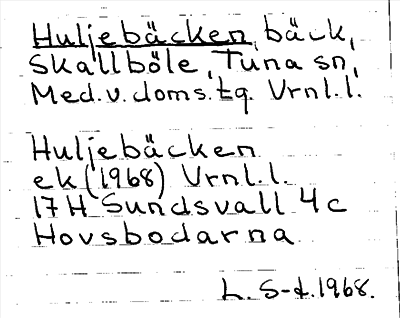 Huljebäcken, bäck,
Skallböle, Tuna sn,
Med.v.doms.tg. Vrnl.l.
Huljebäcken
ek (1968) Vrnl.l.
17 H Sundsvall 4 c
Hovsbodarna
L. S-d. 1968.